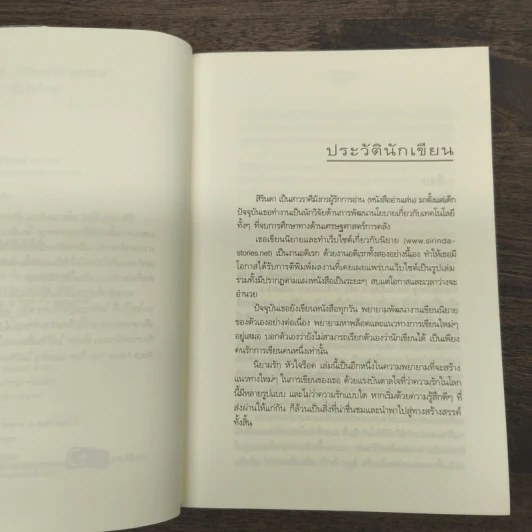 ประวัตินักเขียน
สิรินดา เป็นสาวราศีมังกรผู้รักการอ่าน (หนังสืออ่านเล่น) มาตั้งแต่เด็ก
ปัจจุบันเธอทำงานเป็นนักวิจัยด้านการพัฒนานโยบายเกี่ยวกับเทคโนโลยี
ทั้งๆ ที่จบการศึกษาทางด้านเศรษฐศาสตร์การคลัง
เธอเขียนนิยายและทำเว็บไซต์เกี่ยวกับนิยาย (www.sirinda-
stories.net) เป็นงานอดิเรก ด้วยงานอดิเรกทั้งสองอย่างนี้เอง ทำให้เธอมี
โอกาสได้รับการตีพิมพ์ผลงานที่เคยเผยแพร่บนเว็บไซต์เป็นรูปเล่ม
รวมทั้งมีปรากฏตามแผงหนังสือเป็นระยะๆ สบแต่โอกาสและเวลาว่างจะ
อำนวย
ปัจจุบันเธอยังเขียนหนังสือทุกวัน พยายามพัฒนางานเขียนนิยาย
ของตัวเองอย่างต่อเนื่อง พยายามหาพล็อตและแนวทางการเขียนใหม่ๆ
อยู่เสมอ บอกตัวเองว่ายังไม่สามารถเรียกตัวเองว่านักเขียนได้ เป็นเพียง
คนรักการเขียนคนหนึ่งเท่านั้น
นิยายรัก หัวใจร็อค เล่มนี้เป็นอีกหนึ่งในความพยายามที่จะสร้าง
แนวทางใหม่ๆ ในการเขียนของเธอ ด้วยแรงบันดาลใจที่ว่าความรักในโลก
นี้มีหลายรูปแบบ และไม่ว่าความรักแบบใด หากเริ่มด้วยความรู้สึกดีๆ ที่
ส่งผ่านให้แก่กัน ก็ล้วนเป็นสิ่งที่น่าชื่นชมและนำพาไปสู่ทางสร้างสรรค์
ทั้งสิ้น